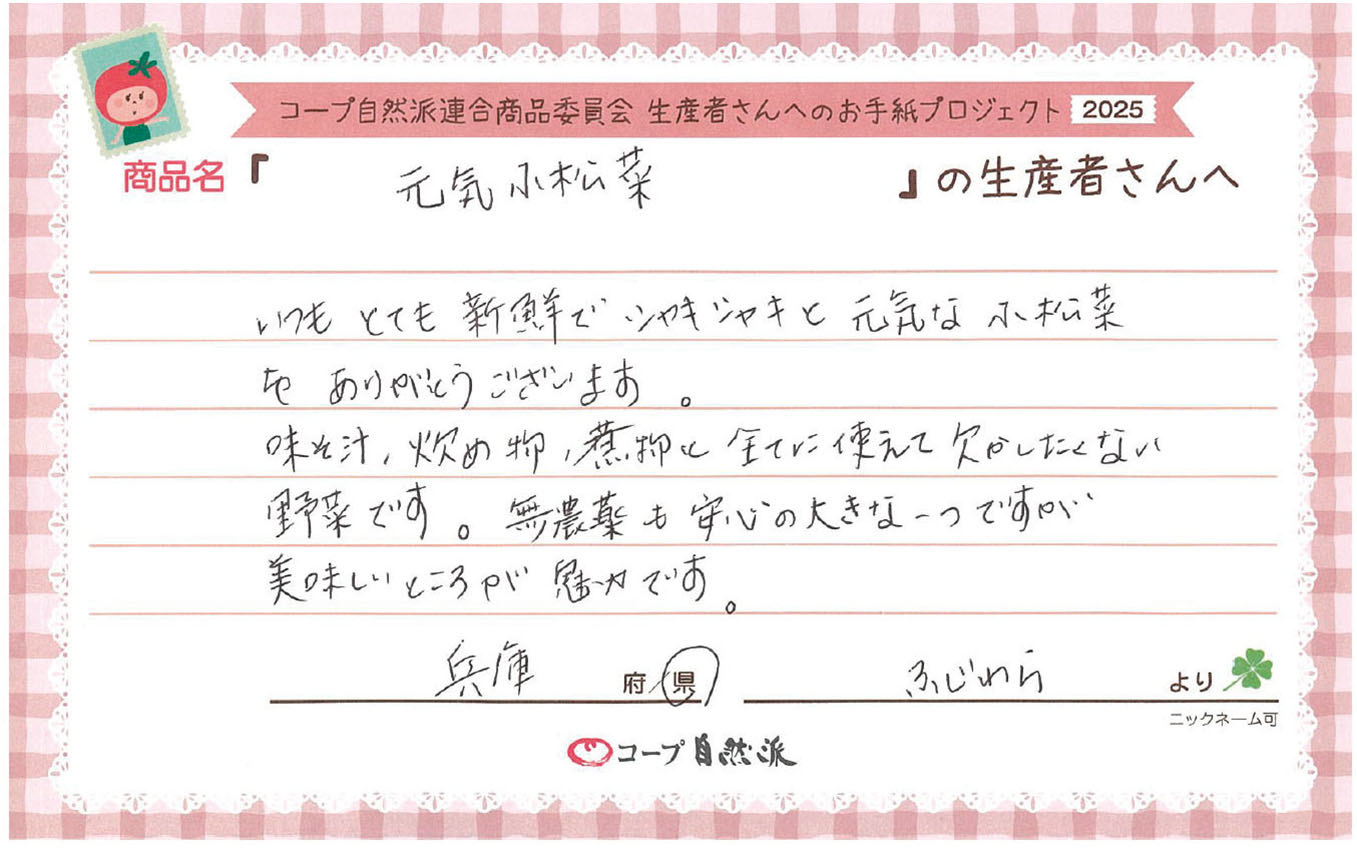 コープ自然派連合商品委員会 生産者さんへのお手紙プロジェクト 2025
商品名『 元気小松菜 』の生産者さんへ
いつも とても 新鮮で シャキシャキと 元気な 小松菜
を ありがとうございます。
味そ汁、炊め物、煮物と 全てに使えて 欠かしたくない
野菜です。無農薬も安心の大きな一つですが
美味しいところが 魅力です。
兵庫 府/県 ふじわら より
ニックネーム可
コープ自然派